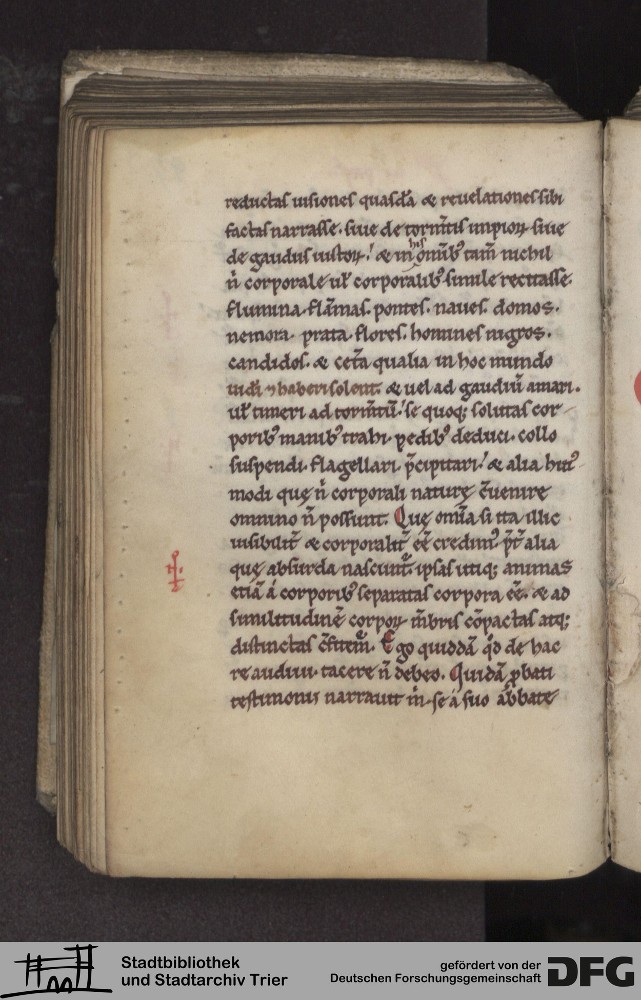 reductas uisiones quasdã & reuelationes sibi
factas narrasse. siue de torm̃tis impioꝝ siue
de gaudiis iustoꝝ! & in his omĩbꝰ tam̃ nichil
ñ corporale uł corporalibꝰ simile recitasse.
flumina. flãmas. pontes. naues. domos.
nemora. prata. flores. homines nigros.
candidos. & cet̃a qualia in hoc mundo
uid̃i ⁊ haberi solent. & uel ad gaudiũ amari.
uł timeri ad torm̃tũ! se quoq; solutas cor
poribꝰ manibꝰ trahi. pedibꝰ deduci. collo
suspendi. flagellari. p̃cipitari! & alia huiꝰ
modi quę ñ corporali naturę c̃uenire
omnino ñ possunt. Quę om̃ia si ita illic
uisibilit̃ & corporalit̃ eẽ credimꝰ. p̃t̃ alia
quę absurda nascunt̃. ipsas utiq; animas
etiã á corporibꝰ separatas corpora eẽ. & ad
similitudinẽ corpoꝝ m̃bris cõpactas atq;
distinctas c̃fitem̃. Ego quiddã qd̃ de hac
re audiui. tacere ñ debeo. Quidã ꝓbati
testimonii narrauit m̃. se á suo abbate
Stadtbibliothek
und Stadtarchiv Trier
gefördert von der
Deutschen Forschungsgemeinschaft
DFG